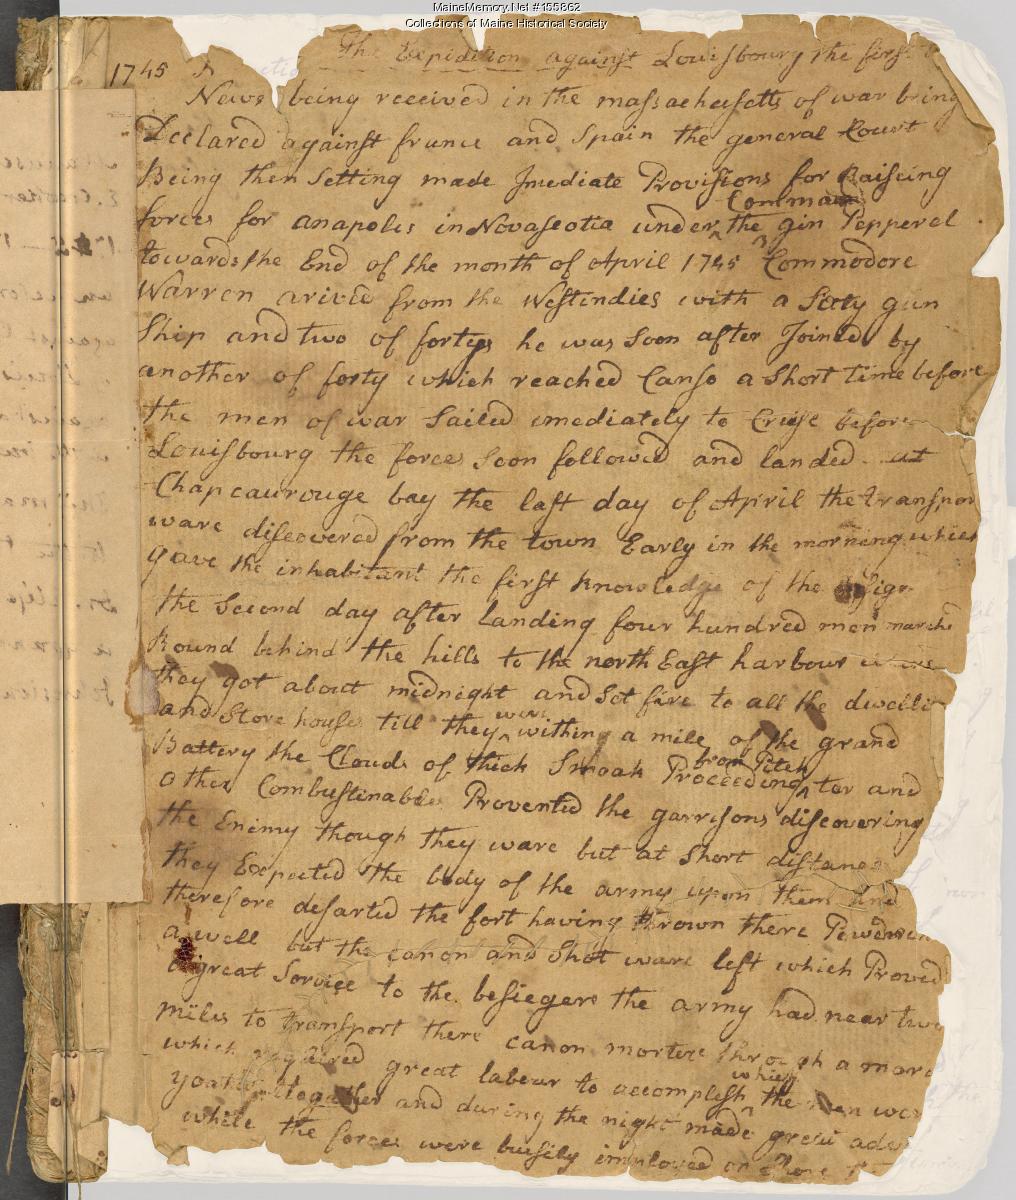 MaineMemory.Net #155862
Collections of Maine Historical Society
The Expidition against Louisbourg the first
1745
News being received in the massachusetts of war being
Declared against france and Spain the general Court
Being then Setting made Imediate Provisions for Raiseing
Command
forces for anapolis in Novascotia under ^ the gin Pepperel
towards the End of the month of April 1745 Commodore
Warren arived from the Westendies with a Sixty gun
Ship and two of fortys he was Soon after Joined by
another of forty which reached Canso a Short time before
the men of war Sailed imediately to Cruise before
Louisbourg the forces Soon followed and landed at
Chapeaurouge bay the last day of April the transpor
ware discovered from the town Early in the morning which
gave the inhabitant the first knowledge of the
the Second day after landing four hundred men marche
Round behind the hills to the north East harbour where
they got about midnight and Set fire to all the dwelli
were
and Store houses till they ^ withing a mile of the grand
from Pitch
Battery the Clouds of thick Smoak Proceeding ^ tar and
other Combustenables Prevented the garrisons discovering
the Enemy though they ware but at Short distance
they Expected the body of the army upon them and
therefore desarted the fort having thrown there Powder in
a well but the canon and Shot ware left which Proved
great Service to the besiegers the army had near two
miles to transport there canon morters through a mora
which required great labour to accomplish
which
the men wer
yoated together and during the night made ^ great adv
while the forces were buisily imployed on Shore